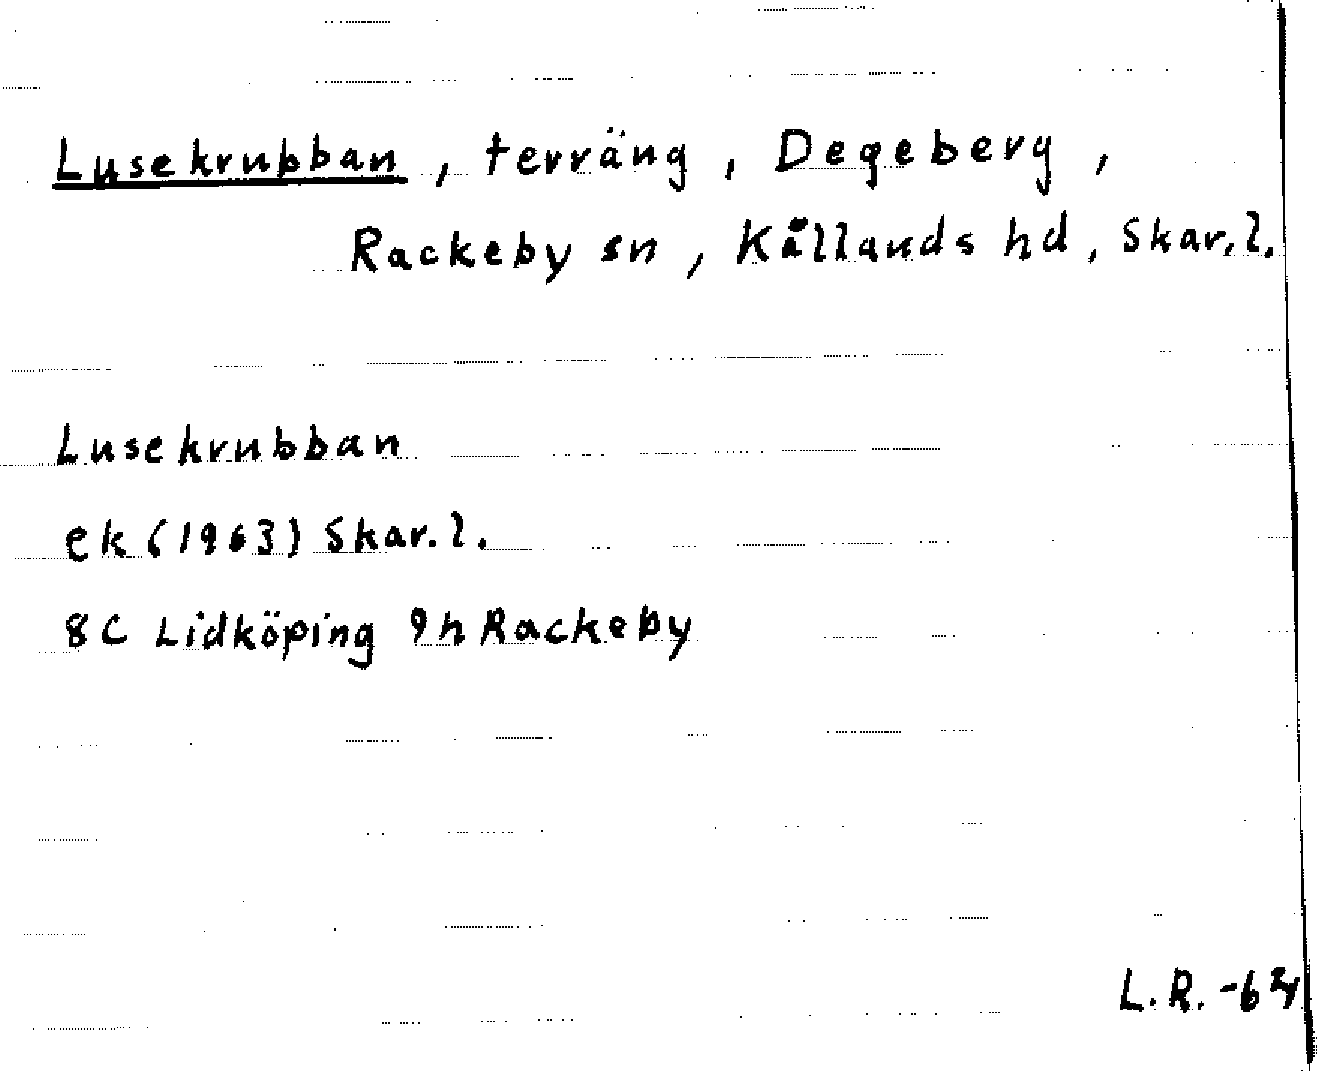 Lusekrubban, terräng, Degeberg,
Rackeby sn, Kållands hd, Skar.l.
Lusekrubban
ek (1963) Skar.l.
8C Lidköping 9h Rackeby
L.R. -64